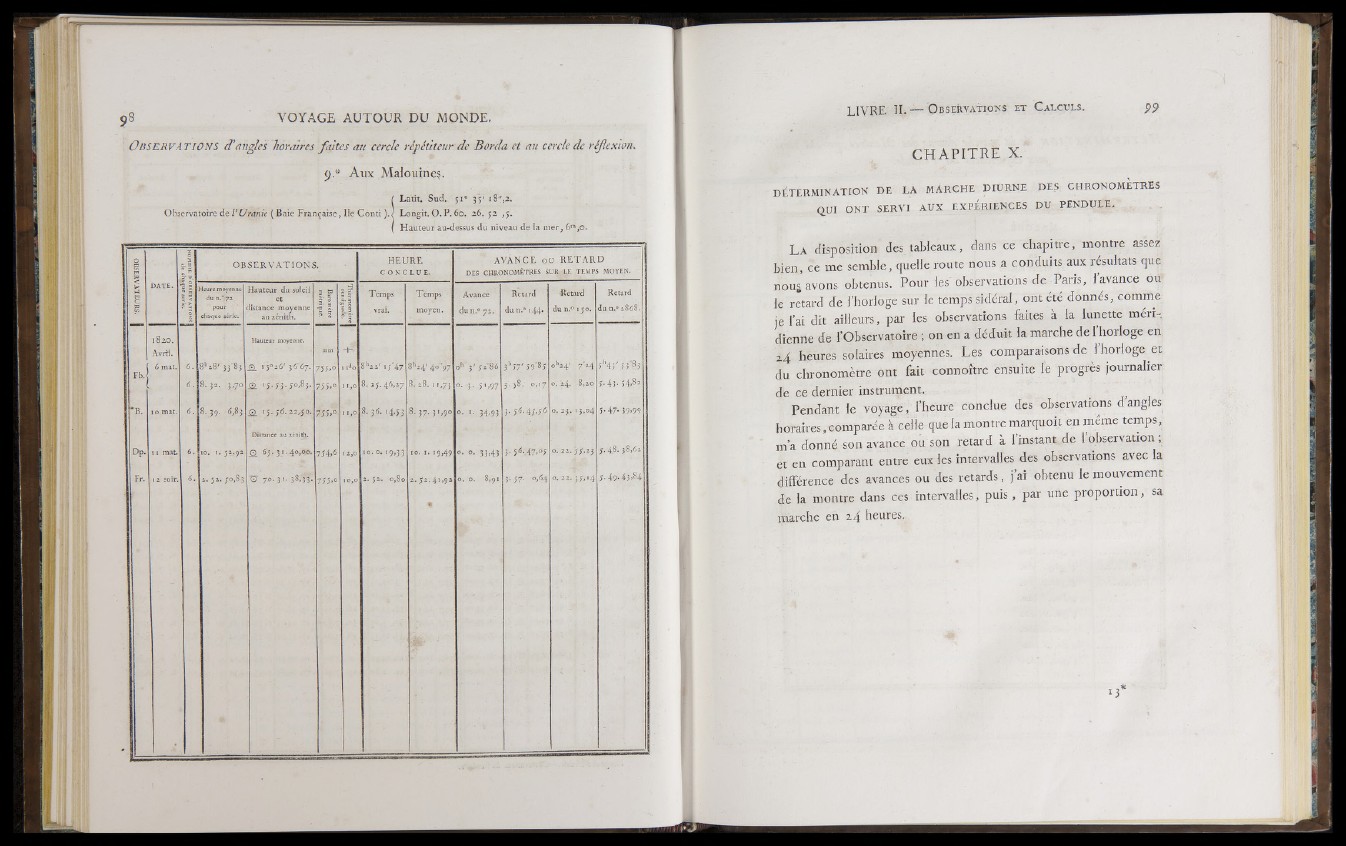 98 VOYAGE AUTOUR DU MONDE.
OBSERVATIONS d'angles horaires faites au cercle répétiteur de Borda et au cercle de réflexion.
9.° Aux Malouines.
Latit. Sud. 51° 35' 18",2.
Observatoire de l'Uranie (Baie Française, Ile Conti). Longit. O. P. 60. 26. 52 ,5.
Hauteur au-dessus du niveau de la mer, 6m,0.
OBSERVATIONS. HEURE CONCLUE. AVANCE OU RETARD
DES CHRONOMÈTRES SUR LE TEMPS MOYEN.
OBSERVATEURS. DATE. Heure moyenne du n.° 72 pour chaque série. Hauteur du soleil et distance moyenne au zénith. Temps vrai. Temps moyen. Avance du n.° 72. Retard du n.° 144. Retard du n.° 150. Retard du n.° 2868.
1820. Hauteur moyenne.
Avril. mm +
Fb. 6 mat. 6. 8h 28' 33"83 13° 26' 56"67. 755,0 11°0 8h 22' 15"47 8h 24' 40"97 0h 3' 52"86 3h 57' 59"85 0h 24' 7"24 5h 43' 53"83
6. 8. 32. 3,70 15. 53. 50,83. 755,0 11,0 8. 25. 46,27 8. 28. 11,73 0. 3. 51,97 3. 58. 0,17 0. 24. 8,20 5. 43. 54,80
B. 10 mat. 6. 8. 39. 6,83 15. 56. 22,50. 755,0 11,0 8. 36. 14,53 8. 37. 31,90 0. 1. 34,93 3. 56. 45,56 0. 23. 15,04 5. 47. 39,99
Distance au zénith.
Dp. 12 mat. 6. 10. 1. 52,92 65. 31. 40,00. 754,6 12,0 10. 0. 19,33 10. 1. 19,49 0. 0. 33,43 3. 56. 47,05 0. 22. 35,23 5. 48. 38,61
Fr. 12 soir. 6. 2. 52. 50,83 70. 31. 38,33. 755,0 10,0 2. 52. 0,80 2. 52. 41,92 0. 0. 8,91 3. 57. 0,64 0. 22. 35,14 5. 49. 43,84
LIVRE II. — OBSERVATIONS ET CALCULS. 99
CHAPITRE X.
DÉTERMINATION DE LA MARCHE DIURNE DES CHRONOMÈTRES
QUI ONT SERVI AUX EXPÉRIENCES DU PENDULE.
LA disposition des tableaux, dans ce chapitre, montre assez
bien, ce me semble, quelle route nous a conduits aux résultats que
nous avons obtenus. Pour les observations de Paris, l'avance ou
le retard de l'horloge sur le temps sidéral, ont été donnés, comme
je l'ai dit ailleurs, par les observations faites à la lunette méri-
dienne de l'Observatoire ; on en a déduit la marche de l'horloge en
24 heures solaires moyennes. Les comparaisons de l'horloge et
du chronomètre ont fait connoître ensuite le progrès journalier
de ce dernier instrument.
Pendant le voyage, l'heure conclue des observations d'angles
horaires, comparée à celle que la montre marquoit en même temps,
m'a donné son avance ou son retard à l'instant de l'observation ;
et en comparant entre eux les intervalles des observations avec la
différence des avances ou des retards, j'ai obtenu le mouvement
de la montre dans ces intervalles, puis, par une proportion, sa
marche en 24 heures.
13*